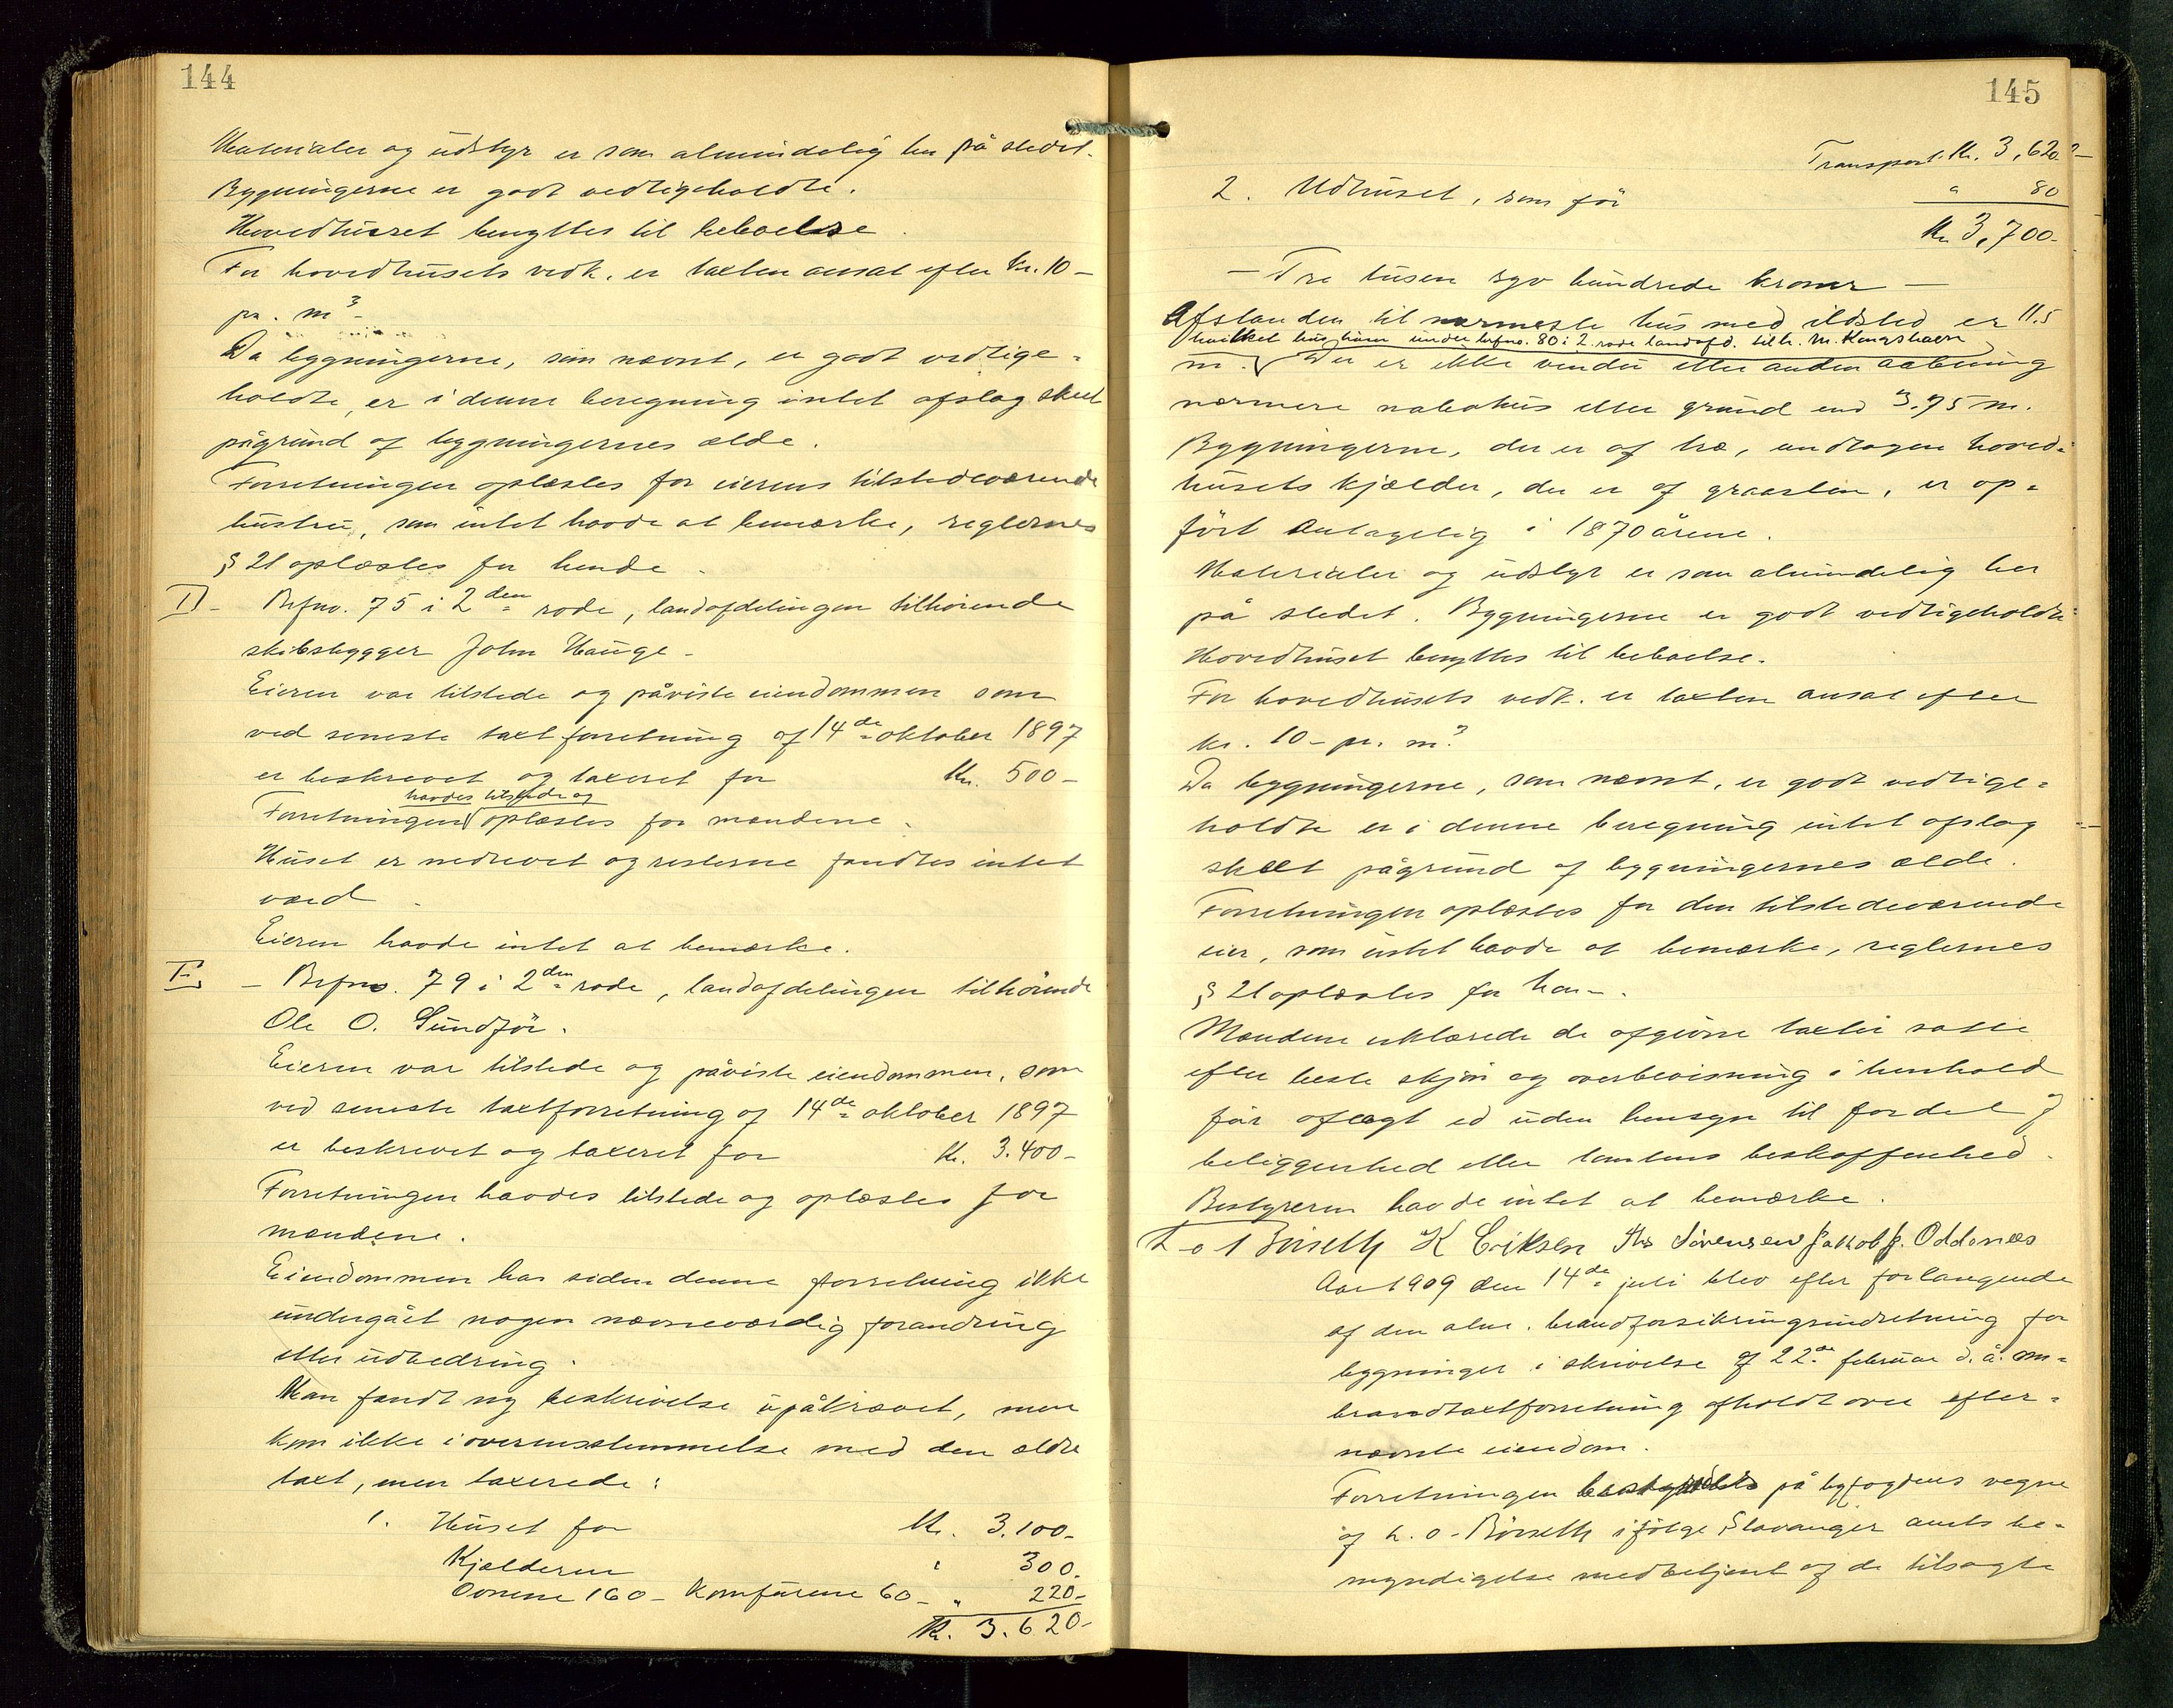 144
Materialer og udstyr er som almindelig her på stedet.
Bygningerne er godt vedligeholdte.
Hovedhuset benyttes til beboelse.
For hovedhusets vedk. er taxten ansat efter kr. 10-
pr. m³-
Da bygningerne, som nævnt, er godt vedlige-
holdte, er i denne beregning intet afslag skeet
pågrund af bygningernes ælde.
Forretningen oplæstes for eierens tilstedeværende
hustru, som intet havde at bemærke, reglernes
§ 21 oplæstes for hende.
D - Brfno. 75 i 2den rode, landafdelingen tilhörende
skibsbygger John Hauge-
Eieren var tilstede og påviste eiendommen som
ved seneste taxtforretning af 14de oktober 1897
er beskrevet og taxeret for Kr. 500-
havdes tilstede og
Forretningen oplæstes for mændene.
Huset er nedrevet og resterne fandtes intet
værd.
Eieren havde intet at bemærke.
E - Brfno. 79 i 2den rode, landafdelingen tilhörende
Ole O. Sundför.
Eieren var tilstede og påviste eiendommen, som
ved seneste taxtforretning af 14de oktober 1897
er beskrevet og taxeret for Kr. 3.400-
Forretningen havdes tilstede og oplæstes for
mændene.
Eiendommen har siden denne forretning ikke
undergået nogen nævneværdig forandring
eller udbedring.
Man fandt ny beskrivelse upåkrævet, men
kom ikke i overensstemmelse med den ældre
taxt, men taxerede:
1. Huset for Kr. 3.100-
Kjælderen " 300.
Ovnene 160- Komfurene 60- " 220-
Kr. 3.620-
145
Transport Kr. 3,620.-
2. Udhuset, som för " 80
Kr 3,700-
- Tre tusen syv hundrede kroner -
Afstanden til nærmeste hus med ildsted er 11.5
hvilket hus under brfno. 80 i 2. rode landafd. tilh. M. Kongshavn
m. Der er ikke vindu eller anden aabning
nærmere nabohus eller grund end 3.75 m.
Bygningerne, der er af træ, undtagen hoved-
husets kjælder, der er af graasten, er op-
fört antagelig i 1870 årene.
Materialer og udstyr er som almindelig her
på stedet. Bygningerne er godt vedligeholdte
Hovedhuset benyttes til beboelse.
For hovedhusets vedk. er taxten ansat efter
kr. 10- pr. m³
Da bygningerne, som nævnt, er godt vedlige-
holdte er i denne beregning intet afslag
skeet pågrund af bygningernes ælde.
Forretningen oplæstes for den tilstedeværende
eier, som intet havde at bemærke, reglernes
§ 21 oplæstes for ham.
Mændene erklærede de afgivne taxter satte
efter beste skjön og overbevisning i henhold
för aflagt ed uden hensyn til fordel af
beliggenhed eller tomtens beskaffenhed.
Bestyreren havde intet at bemærke.
K Eriksen Sörensen Jakob J. Oddsnæs
Aar 1909 den 14de juli blev efter forlangende
af den alm. brandforsikringsindretning for
bygninger i skrivelse af 22de februar d. å. om-
brandtaxtforretning afholdt over efter-
nævnte eiendom.
Forretningen på byfogdens vegne
af ifölge Stavanger amts be-
myndigelse medbetjent af de tilsagte